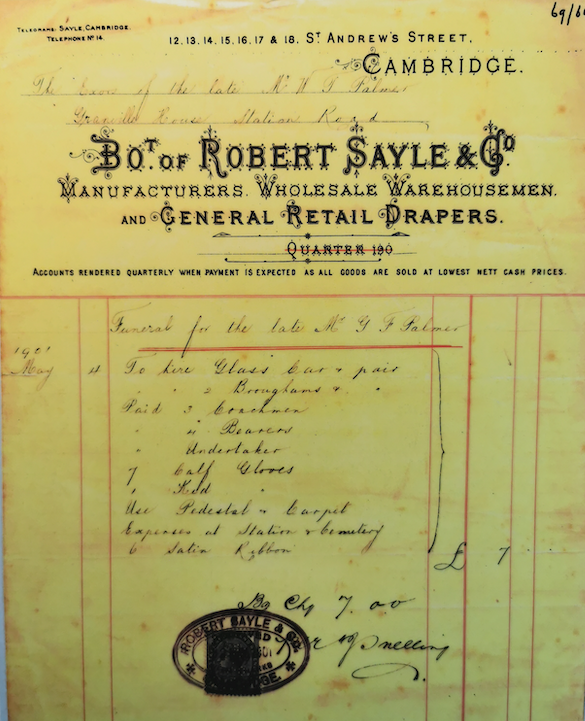 69/6
TELEGRAMS: SAYLE, CAMBRIDGE.
TELEPHONE Nº 14.
12.13.14.15.16.17 & 18. ST ANDREW'S STREET,
CAMBRIDGE.
The Exors of the late Mr W P Palmer
Granville House Station Road
BOT. OF ROBERT SAYLE & CO.
MANUFACTURERS. WHOLESALE WAREHOUSEMEN.
AND GENERAL RETAIL DRAPERS.
QUARTER 190
ACCOUNTS RENDERED QUARTERLY WHEN PAYMENT IS EXPECTED AS ALL GOODS ARE SOLD AT LOWEST NETT CASH PRICES.
Funeral for the late Mr G F Palmer
1901
May 4 To hire Glass Car & pair
" " 2 Broughams & "
Paid 3 Coachmen
" 4 Bearers
" Undertaker
7 Calf Gloves
1 Kid "
Use Pedestal & Carpet
Expenses at Station & Cemetery
6 Satin Ribbon £ 7
By Chq 7.00
ROBERT SAYLE & CO.
Snelling